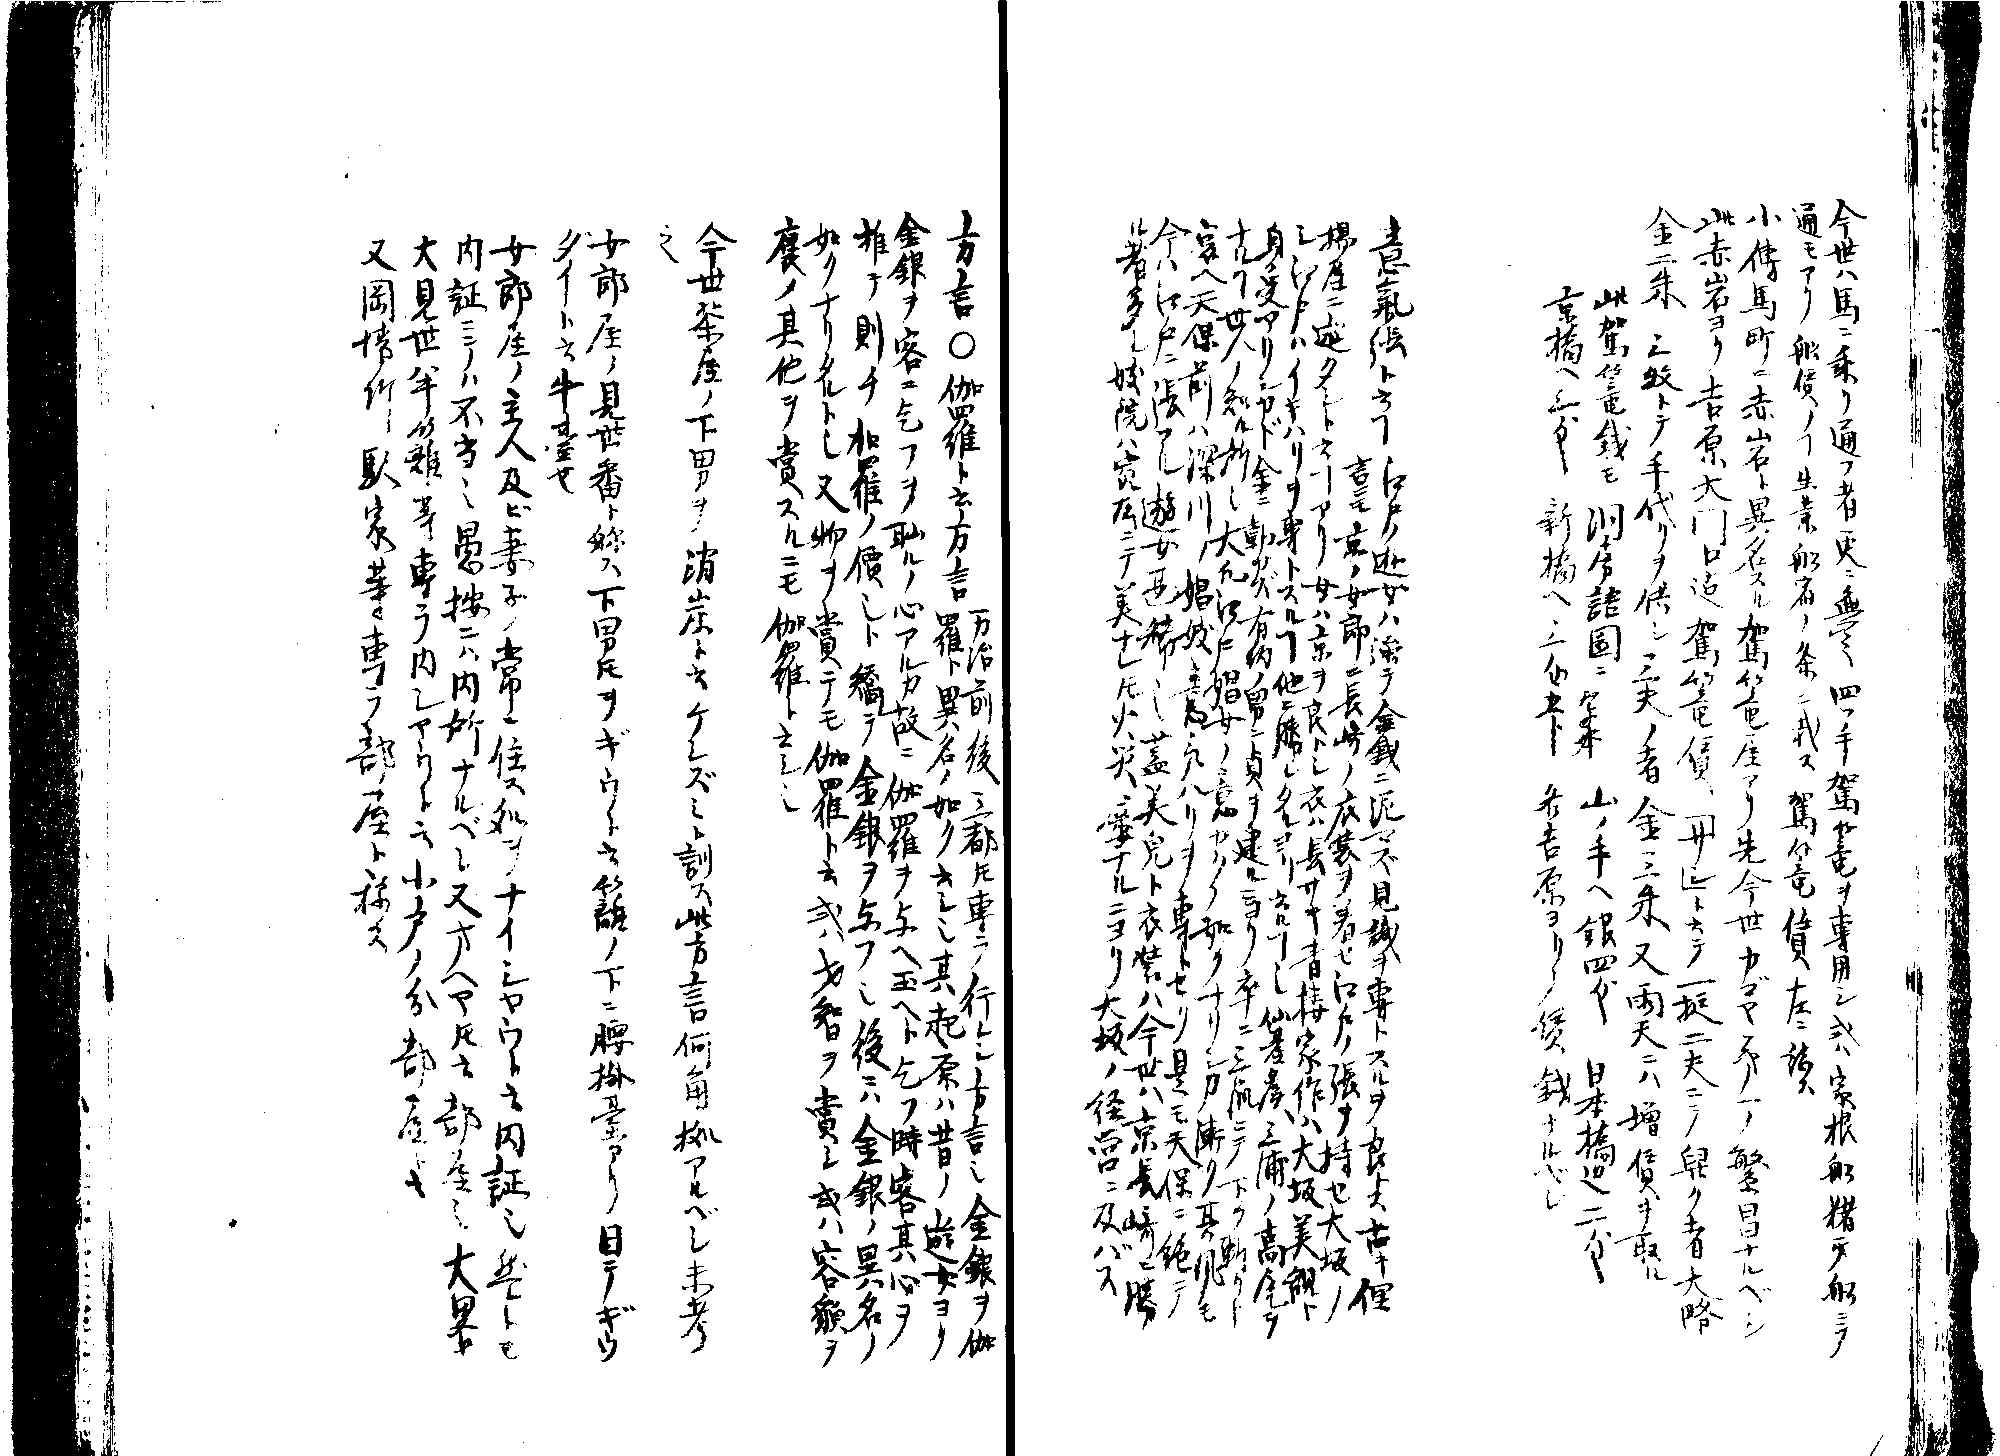 今世ハ馬ニ乗リ通フ者更ニ無之四ツ手駕篭ヲ専用シ或ハ家根船猪牙船ニテ
通モアリ船賃ノ丁生業船宿ノ条ニ載ス駕篭賃左ニ誌ス
小傳馬町ニ赤岩ト異名スル駕篭屋アリ先今世カゴヤ第一ノ繁昌ナルベシ
此赤岩ヨリ吉原大門口迄駕篭賃「 」ト云テ一挺二夫ニテ舁ク者大略
金二朱 三枚トテ手代リヲ供シ三夫ノ者金三朱又雨天ニハ増賃ヲ取ル
此駕篭銭モ洞房語園ニ 山ノ手ヘ銀四匁 日本橋辺二匁
京橋ヘ三匁 新橋ヘ三匁五ト 各吉原ヨリノ賃銭ナルベシ
意氣張ト云丁 江戸ノ遊女ハ強テ金銭ニ泥マズ見識ヲ専トスルヲ良トス古キ俚
言モ京ノ女郎ニ長崎ノ衣装ヲ着セ江戸ノ張ヲ持セ大坂ノ
揚屋ニ遊タシト云丁アリ女ハ京ヲ良トシ衣ハ長サキ青楼家作ハ大坂美麗ト
シ江戸ハイキハリヲ専トスル丁他ニ勝レタルヨリ云ル丁也仙臺産三浦ノ高尾ヲ
身受アリシカド金ニ動カズ有約ノ男ニ貞ヲ建ルニヨリ卒ニ三派ニテ下ケ斬シト
云ル丁世人ノ知ル所シ大凡江戸娼女ノ意カクノ如クナリシカ漸ク其風モ
衰ヘ天保前ハ深川ノ娼妓意氣ハリヲ専トセリ是モ天保ニ絶テ
今ハ江戸ニ張アル遊女甚稀シ蓋美児ト衣装ハ今世ハ京長崎ニ勝
ル者多シ妓院ハ官府ニテ美ナレ𪜈火災 ナルニヨリ大坂ノ経営ニ及バズ
方言〇伽羅ト云方言 万治前後三都𪜈専ラ行レシ方言シ金銀ヲ伽
羅ト異名ノ如ク云シシ其起原ハ昔ノ遊女ヨリ
金銀ヲ客ニ乞フヲ恥ルノ心アルカ故ニ伽羅ヲ与ヘ玉ヘト乞フ時客其心ヲ
推テ則チ伽羅ノ價シト稱テ金銀ヲ与フシ後ニハ金銀ノ異名ノ
如クナリタルトシ又物ヲ賞テモ伽羅ト云或ハ才智ヲ賞シ或ハ容貌ヲ
褒ノ其他ヲ賞スルニモ伽羅ト云シシ
今世茶屋ノ下男ヲ消炭ト云ケシズミト訓ス此方言何角拠アルベシ未考
之
女郎屋ノ見世番ト称ス下男𪜈ヲギウト云簾ノ下ニ腰掛臺アリ目テギウ
ダイト云牛臺也
女郎屋ノ主人及ビ妻子ノ常ニ住ス処ヲナイシヤウト云内証シ然レトモ
内証ニテハ不当シ愚按ニハ内所ナルベシ又ヲヘヤ𪜈云部屋シ大畧
大見世半籬等専ラ内シヤウト云小戸ノ分部屋ト云
又岡場所駅家等ニ専ラ部屋ト称ス